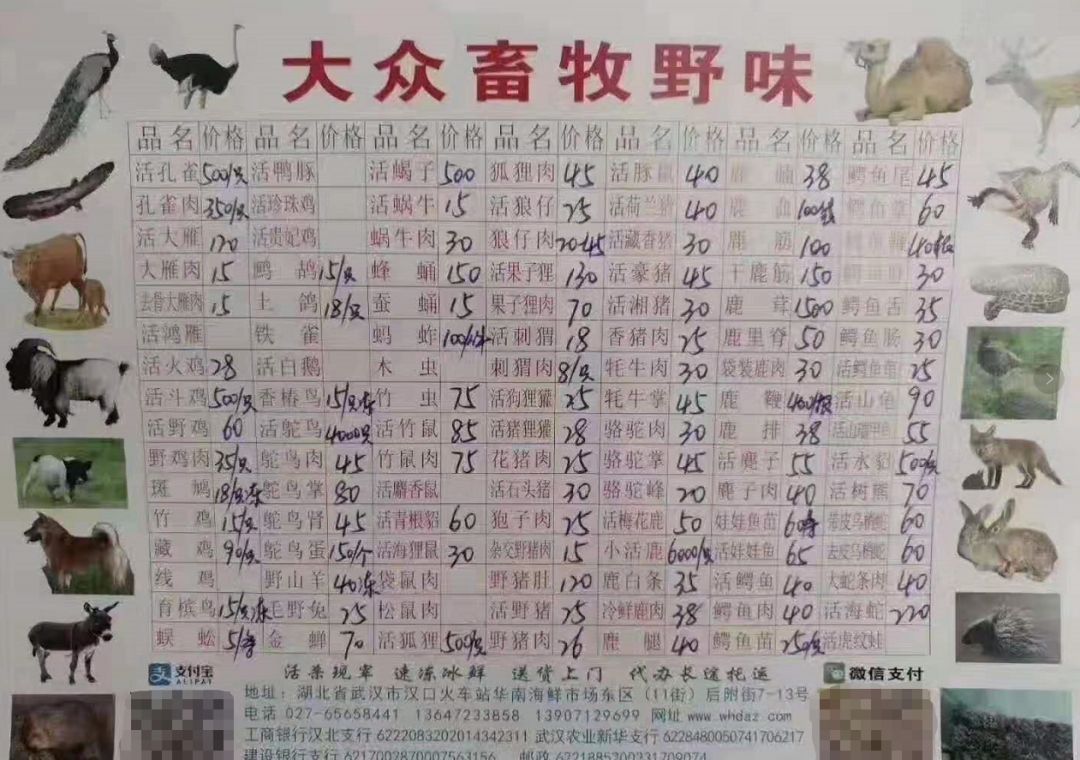 大众畜牧野味
品名 价格 品名 价格 品名 价格 品名 价格 品名 价格 品名 价格 品名 价格
活孔雀 500/只 活鸭豚 活蝎子 500 狐狸肉 45 活豚鼠 40 鹿 38 鳄鱼尾 45
孔雀肉 350/只 活珍珠鸡 活蜗牛 15 活狼仔 25 活荷兰猪 40 鹿血 鳄鱼掌 60
活大雁 120 活贵妃鸡 蜗牛肉 30 狼仔肉 20-45 活藏香猪 30 鹿筋 100 鳄鱼鞭
大雁肉 15 鹧鸪 15/只 蜂蛹 150 活果子狸 130 活豪猪 45 干鹿筋 150 30
去骨大雁肉 15 土鸽 18/只 蚕蛹 15 果子狸肉 70 活湘猪 30 鹿茸 1500 鳄鱼舌 35
活鸿雁 铁雀 蚂蚱 活刺猬 18 香猪肉 25 鹿里脊 50 鳄鱼肠 30
活火鸡 28 活白鹅 木虫 刺猬肉 8/只 牦牛肉 30 袋装鹿肉 30 活鳄鱼龟 25
活斗鸡 500/只 香椿鸟 15/只冻 竹虫 75 活狗狸獾 25 牦牛掌 45 鹿鞭 活山龟 90
活野鸡 60 活鸵鸟 4000只 活竹鼠 85 活猪狸獾 28 骆驼肉 30 鹿排 38 55
野鸡肉 35/只 鸵鸟肉 45 竹鼠肉 75 花猪肉 25 骆驼掌 45 活麂子 55 活水貂 500/只
斑鸠 18/只冻 鸵鸟掌 80 活麝香鼠 活石头猪 30 骆驼峰 20 麂子肉 40 活树熊 70
竹鸡 15/只 鸵鸟肾 45 活青根貂 60 狍子肉 25 活梅花鹿 50 娃娃鱼苗 带皮乌梢蛇 60
藏鸡 90/只 鸵鸟蛋 150/个 活海狸鼠 30 杂交野猪肉 15 小活鹿 6000/只 活娃娃鱼 65 去皮乌梢蛇 60
线鸡 野山羊 40冻 袋鼠肉 野猪肚 120 鹿白条 35 活鳄鱼 40 大蛇条肉 40
育槟鸟 15/只冻 毛野兔 25 松鼠肉 活野猪 25 冷鲜鹿肉 38 鳄鱼肉 40 活海蛇 220
蜈蚣 金蝉 70 活狐狸 500/只 野猪肉 26 鹿腿 40 鳄鱼苗 250/只 活虎纹蛙
支付宝 ALIPAY 活杀现宰 速冻冰鲜 送货上门 代办长途托运 微信支付
地址：湖北省武汉市汉口火车站华南海鲜市场东区（11街）后附街7-13号
电话 027-65658441 13647233858 13907129699 网址 www.whdaz.com
工商银行汉北支行 6222083202014342311 武汉农业新华支行 6228480050741706217
建设银行新华支行 6217002870007563156 邮政 6221885200231709074